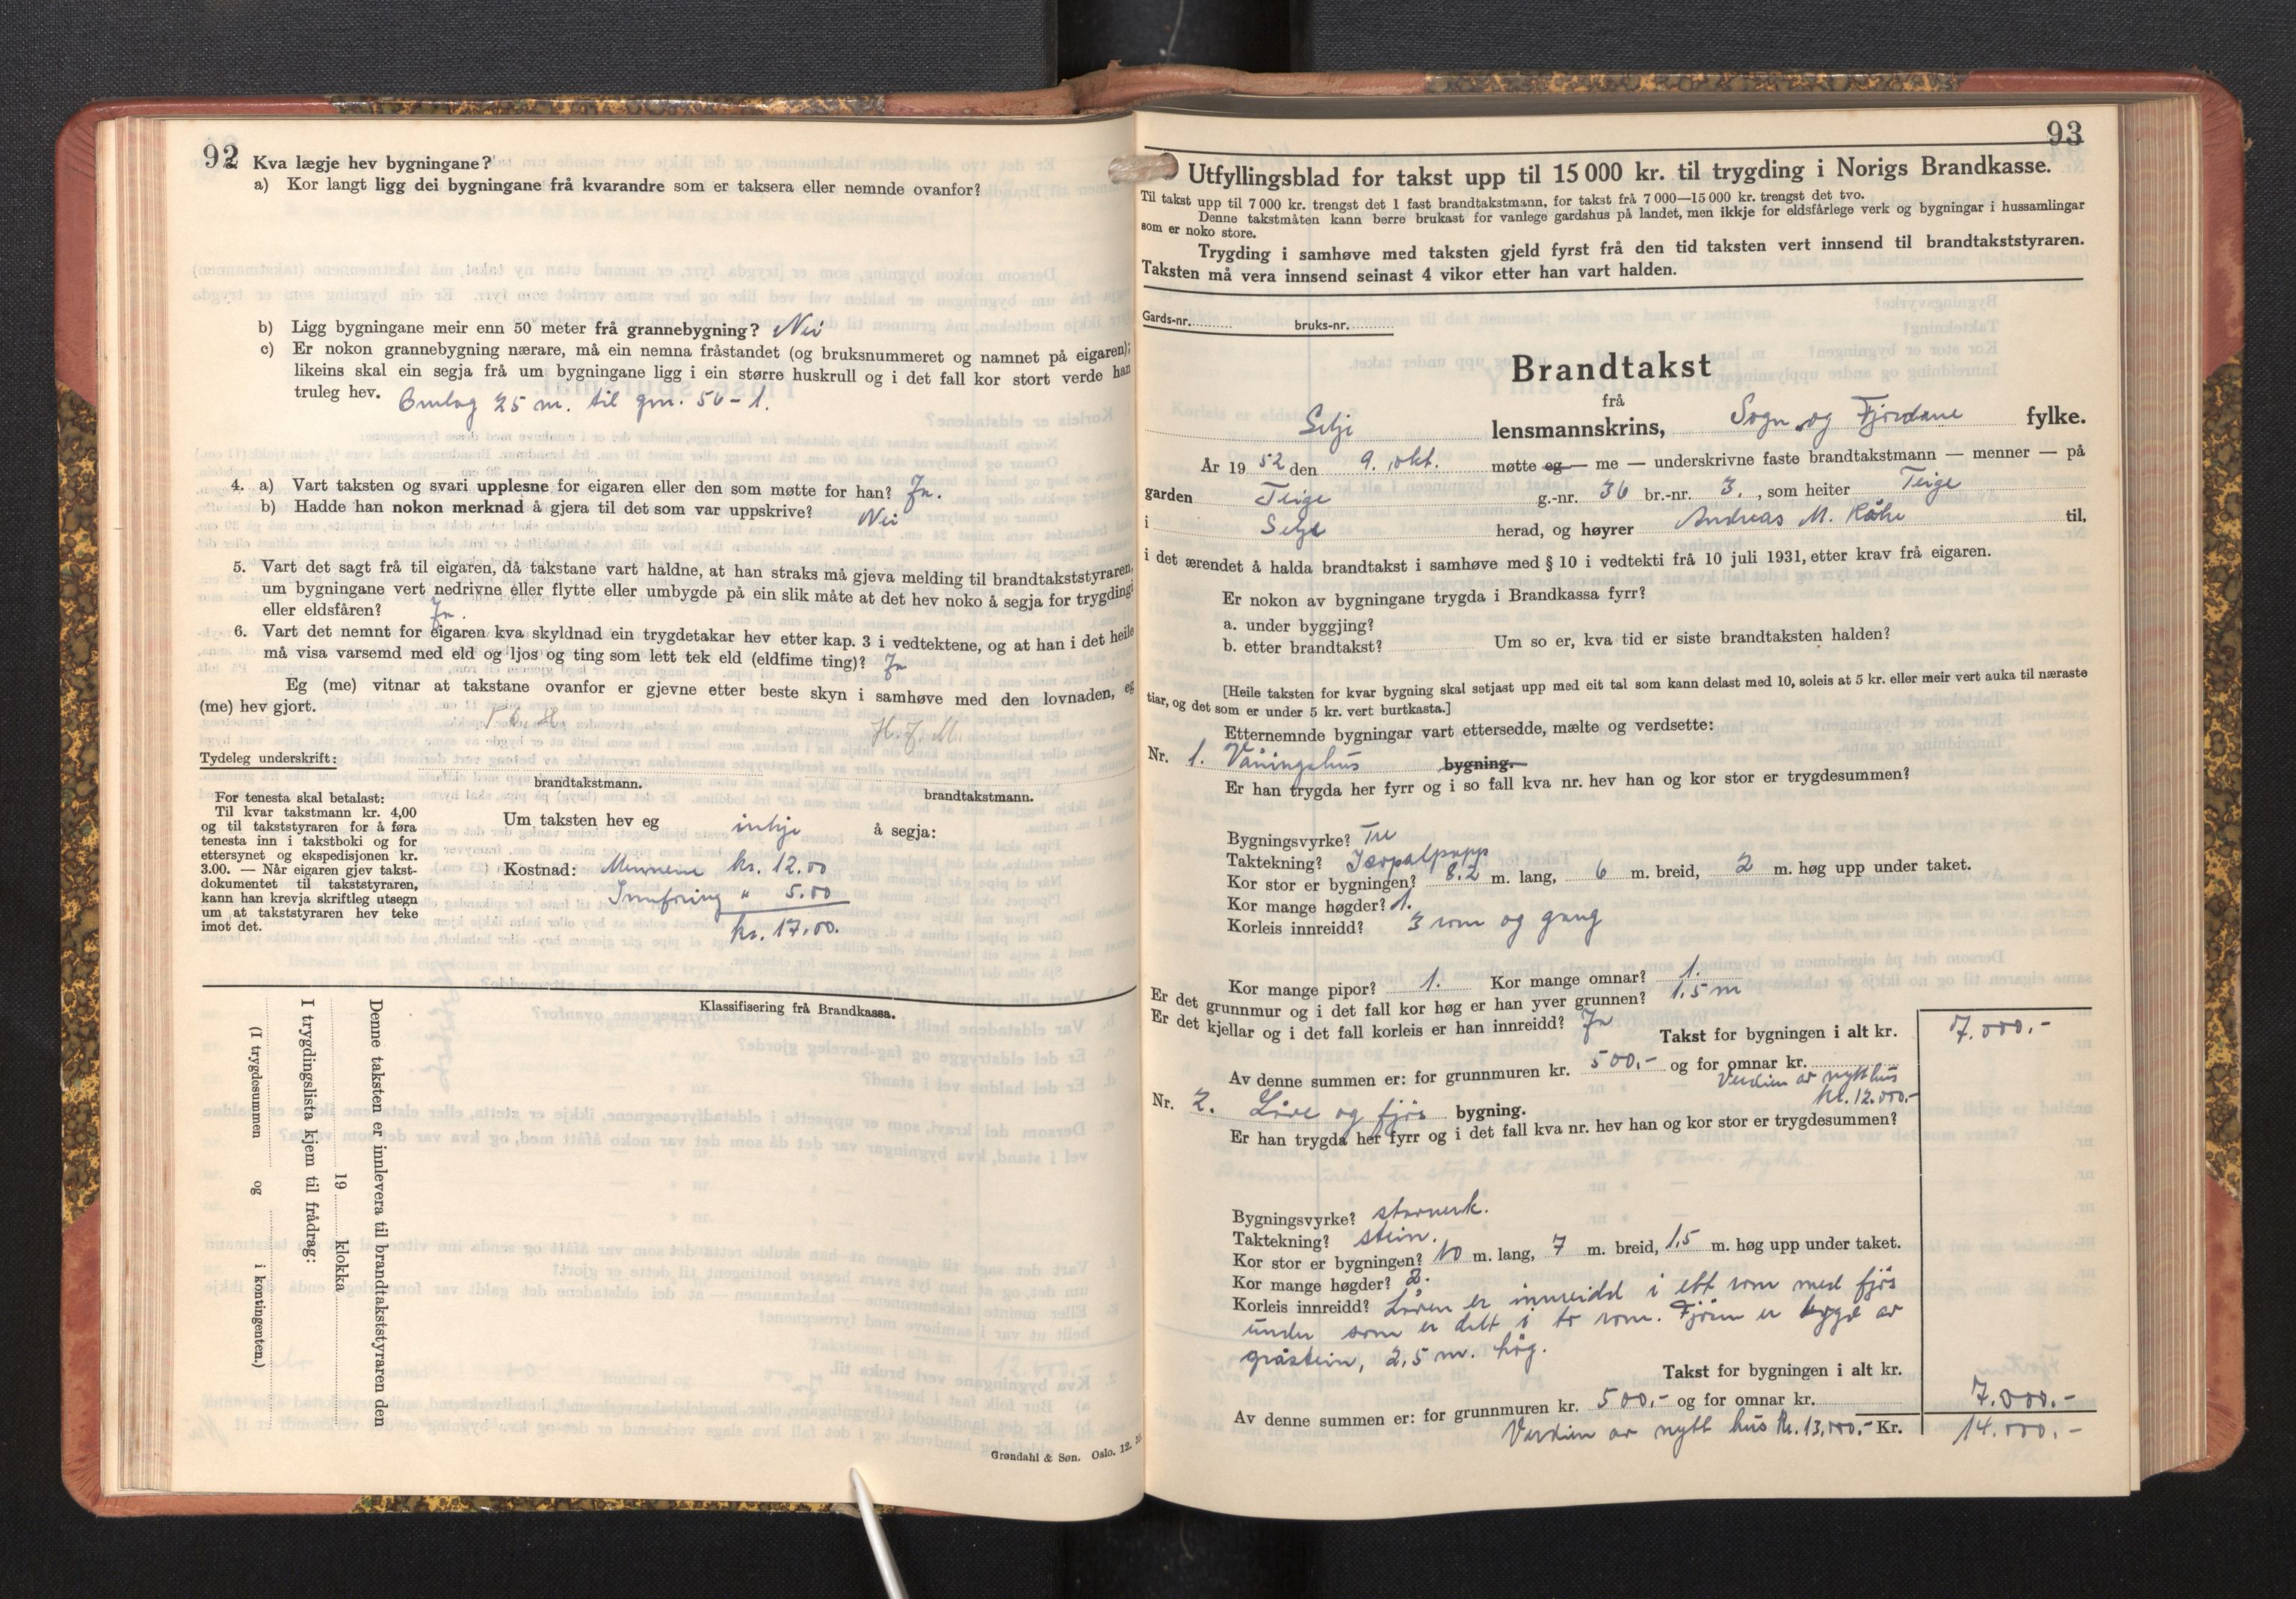 92
Kva lægje hev bygningane?
a) Kor langt ligg dei bygningane frå kvarandre som er taksera eller nemnde ovanfor?
b) Ligg bygningane meir enn 50 meter frå grannebygning? Nei
c) Er nokon grannebygning nærare, må ein nemna fråstandet (og bruksnummeret og namnet på eigaren);
likeins skal ein segja frå um bygningane ligg i ein større huskrull og i det fall kor stort verde han
truleg hev. Omlag 25 m. til gnr. 50-1.
4. a) Vart taksten og svari upplesne for eigaren eller den som møtte for han? Ja.
b) Hadde han nokon merknad å gjera til det som var uppskrive? Nei
5. Vart det sagt frå til eigaren, då takstane vart haldne, at han straks må gjeva melding til brandtakststyraren,
um bygningane vert nedrivne eller flytte eller umbygde på ein slik måte at det hev noko å segja for trygdingi
eller eldsfåren? Ja.
6. Vart det nemnt for eigaren kva skyldnad ein trygdetakar hev etter kap. 3 i vedtektene, og at han i det heile
må visa varsemd med eld og ljos og ting som lett tek eld (eldfime ting)? Ja
Eg (me) vitnar at takstane ovanfor er gjevne etter beste skyn i samhøve med den lovnaden, eg
(me) hev gjort.
H. J. M.
Tydeleg underskrift:
brandtakstmann.
brandtakstmann.
For tenesta skal betalast:
Til kvar takstmann kr. 4,00
og til takststyraren for å føra
tenesta inn i takstboki og for
ettersynet og ekspedisjonen kr.
3.00. — Når eigaren gjev takst-
dokumentet til takststyraren,
kann han krevja skriftleg utsegn
um at takststyraren hev teke
imot det.
Um taksten hev eg inkje å segja:
Kostnad: Mennene kr. 12.00
Innføring " 5.00
kr. 17.00.
Klassifisering frå Brandkassa.
Denne taksten er innlevera til brandtakststyraren den
19 klokka
I trygdingslista kjem til frådrag:
(I trygdesummen og i kontingenten.)
Grøndahl & Søn. Oslo. 12.
93
Utfyllingsblad for takst upp til 15 000 kr. til trygding i Norigs Brandkasse.
Til takst upp til 7 000 kr. trengst det 1 fast brandtakstmann, for takst frå 7 000—15 000 kr. trengst det tvo.
Denne takstmåten kann berre brukast for vanlege gardshus på landet, men ikkje for eldsfårlege verk og bygningar i hussamlingar
som er noko store.
Trygding i samhøve med taksten gjeld fyrst frå den tid taksten vert innsend til brandtakststyraren.
Taksten må vera innsend seinast 4 vikor etter han vart halden.
Gards-nr. bruks-nr.
Brandtakst
frå
Selje lensmannskrins, Sogn og Fjordane fylke.
År 1952 den 9. okt. møtte eg — me — underskrivne faste brandtakstmann — menner — på
garden Teige g.-nr. 36 br.-nr. 3. , som heiter Teige
i Selje herad, og høyrer Andreas M. Råke til,
i det ærendet å halda brandtakst i samhøve med § 10 i vedtekti frå 10 juli 1931, etter krav frå eigaren.
Er nokon av bygningane trygda i Brandkassa fyrr?
a. under byggjing?
b. etter brandtakst? Um so er, kva tid er siste brandtaksten halden?
[Heile taksten for kvar bygning skal setjast upp med eit tal som kann delast med 10, soleis at 5 kr. eller meir vert auka til næraste
tiar, og det som er under 5 kr. vert burtkasta.]
Etternemnde bygningar vart ettersedde, mælte og verdsette:
Nr. 1. Våningshus bygning.
Er han trygda her fyrr og i so fall kva nr. hev han og kor stor er trygdesummen?
Bygningsvyrke? Tre
Taktekning? Isopalpapp
Kor stor er bygningen? 8.2 m. lang, 6 m. breid, 2 m. høg upp under taket.
Kor mange høgder? 1.
Korleis innreidd? 3 rom og gang
Kor mange pipor? 1. Kor mange omnar? 1.
Er det grunnmur og i det fall kor høg er han yver grunnen? 1.5 m
Er det kjellar og i det fall korleis er han innreidd? Ja
Takst for bygningen i alt kr. 7.000.-
Av denne summen er: for grunnmuren kr. 500.- og for omnar kr.
Verdien av nytt hus
kr. 12.000.-
Nr. 2. Løe og fjøs bygning.
Er han trygda her fyrr og i det fall kva nr. hev han og kor stor er trygdesummen?
Bygningsvyrke? stavverk.
Taktekning? stein.
Kor stor er bygningen? 10 m. lang, 7 m. breid, 1.5 m. høg upp under taket.
Kor mange høgder? 2.
Korleis innreidd? Løen er innreidd i ett rom med fjøs
under som er delt i to rom. Fjøsen er bygd av
gråstein, 2,5 m. høg.
Takst for bygningen i alt kr. 7.000.-
Av denne summen er: for grunnmuren kr. 500.- og for omnar kr.
Verdien av nytt hus kr. 13,000.- Kr. 14.000.-